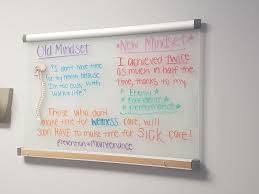 Old Mindset
"I don't have time
for my health because
I'm too busy with
work & life."
New Mindset
I achieved twice
as much in half the
time, thanks to my
* Energy *
* *
* Performance *
Those who don't
make time for wellness care, will
soon HAVE to make time for Sick care!
prevention + maintenance